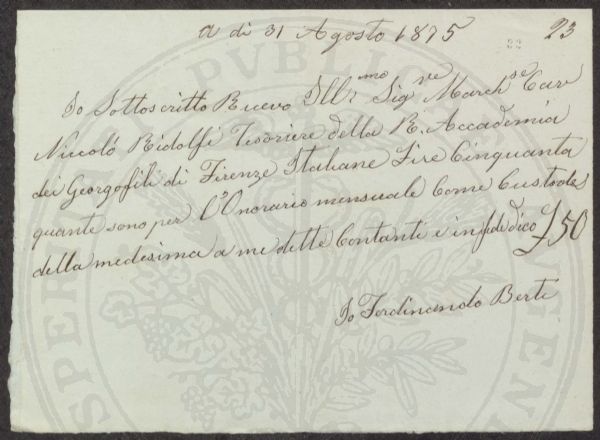 a dì 31 Agosto 1875 23
Io Sottoscritto Ricevo Ill.mo Sig.re March.se Cav
Niccoló Ridolfi Tesoriere della R. Accademia
dei Georgofili di Firenze Italiane Lire Cinquanta
quante sono per l'Onorario mensuale Come Custode
della medesima a me dette Contanti e in fede dico £50
Io Ferdinando Berti
PUBLICAE
PROSPERITATI AUGENDAE